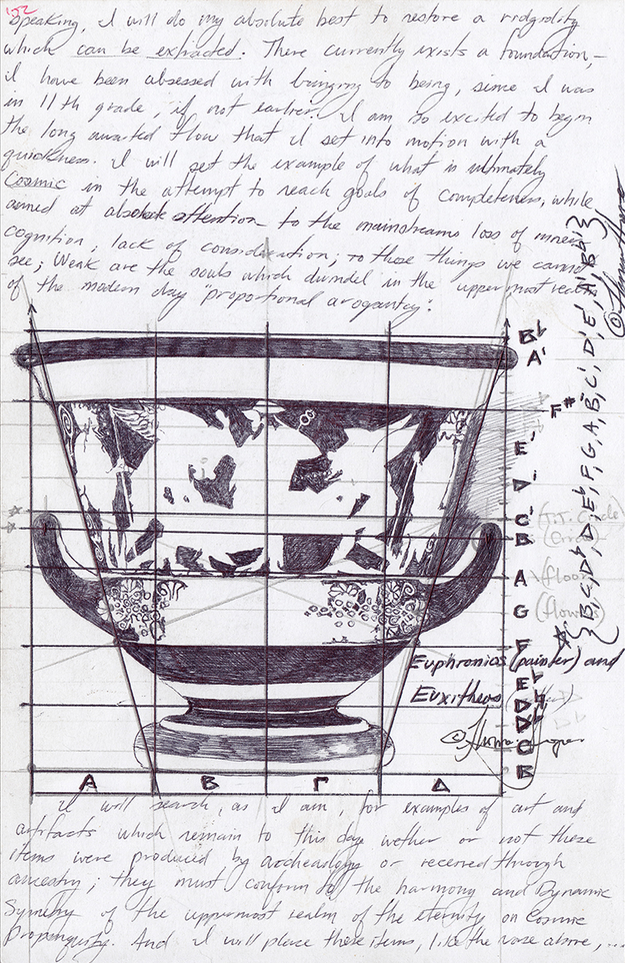 152
Speaking, I will do my absolute best to restore a ridgidity
which can be extracted. There currently exists a foundation,
I have been obsessed with bringing to being, since I was
in 11th grade, if not earlier. I am so excited to begin
the long awaited flow that I set into motion with a
quickness. I will set the example of what is ultimately
Cosmic in the attempt to reach goals of completeness, while
aimed at attention to the mainstreams loss of inner
cognition; lack of consideration; to these things we cannot
see; Weak are the souls which dwindel in the uppermost
of the modern day "proportional arogantcy".
B♭
A'
F#
E'
D'
C'
B
A
G
F
E
D
D
C
B
(Circle)
(floor)
(flowers)
Euphronios (painter) and
Euxitheos
©
A B Γ Δ
{B, C, D♭, D, E♭, F, G, A, B, C', D', E', A', B♭'}
©
I will search, as I am, for examples of art and
artifacts which remain to this day wether or not these
items were produced by archeaology or received through
ancestry; they must confirm to the harmony and Dynamic
Symetry of the uppermost realm of the eternity on Cosmic
Propenquity. And I will place these items, like the vase above, ...